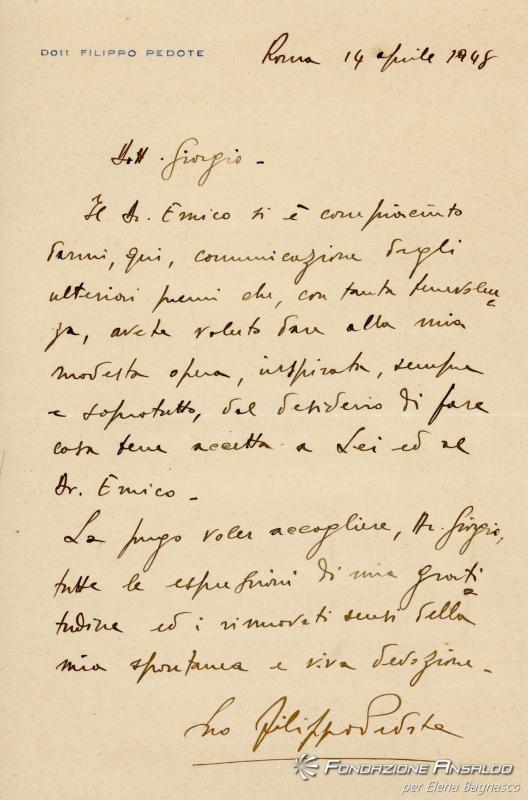 Dott. FILIPPO PEDOTE
Roma 14 aprile 1948
Dott. Giorgio -
Il Dr. Enrico si è compiaciuto
darmi, qui, comunicazione degli
ulteriori premi che, con tanta benevolen=
za, avete voluto dare alla mia
modesta opera, inspirata, sempre
e soprotutto, dal desiderio di fare
cosa bene accetta a Lei ed al
Dr. Enrico -
La prego voler accogliere, Dr. Giorgio,
tutte le espressioni di mia grati=
tudine ed i rinnovati sensi della
mia spontanea e viva devozione -
Suo Filippo Pedote
FONDAZIONE ANSALDO
per Elena Bagnasco